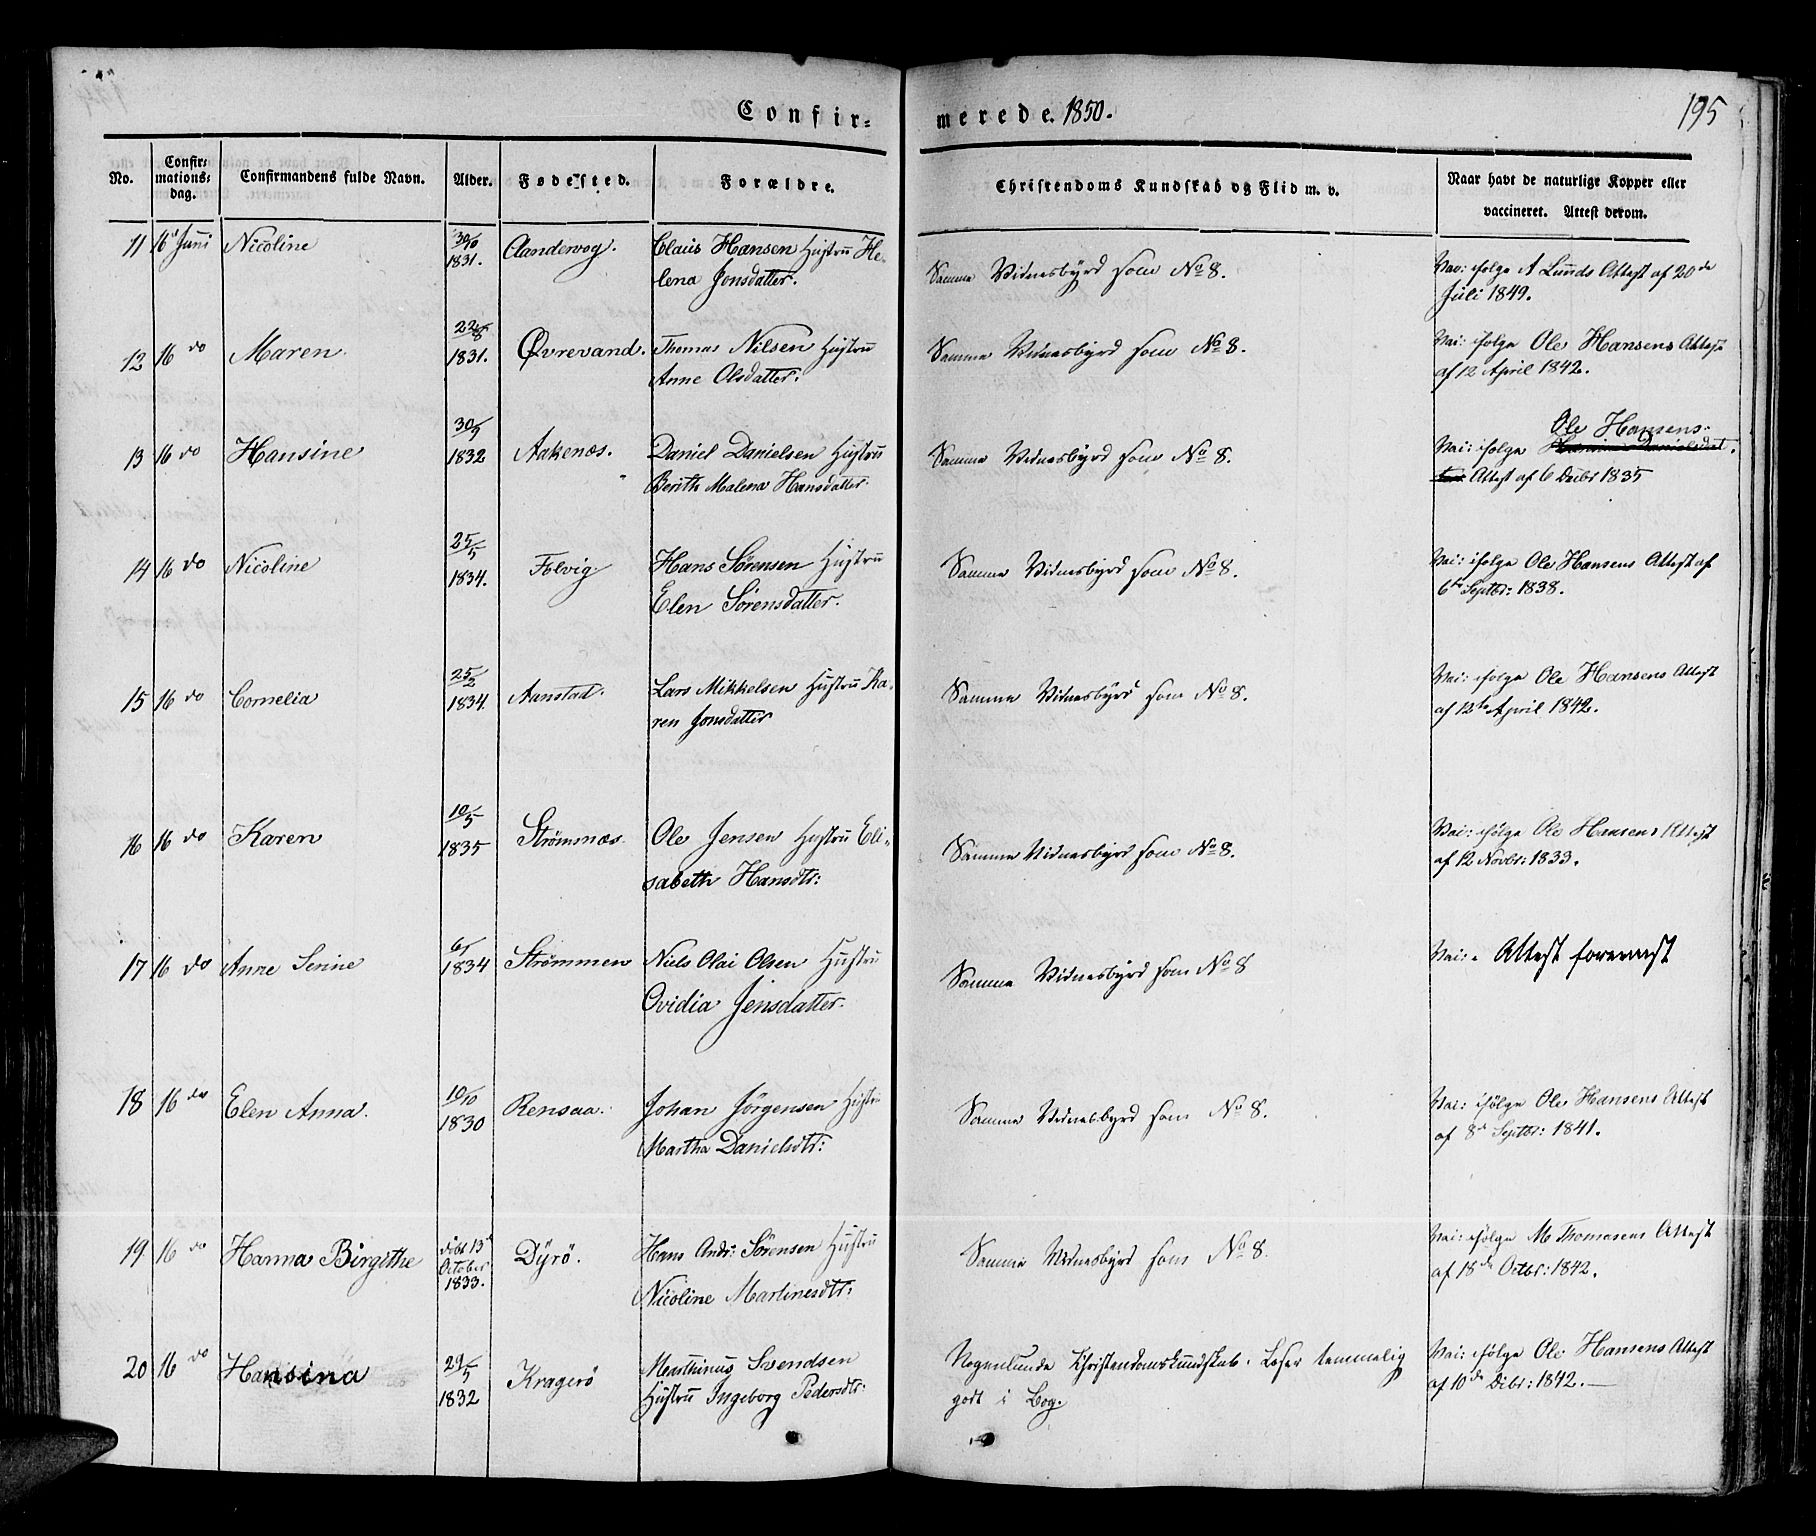 Confir-
merede. 1850.
195
No.
Confir-
mations-
dag.
Confirmandens fulde Navn.
Alder.
Fødested.
Forældre.
Christendoms Kundskab og Flid m. v.
Naar havt de naturlige Kopper eller
vaccineret. Attest derom.
11 16d Juni Nicoline 30/10 1831. Aandervog. Claus Hansen Hustru He-
lena Jonsdatter.
Samme Vidnesbyrd som No 8.
Vac: ifølge A Lunds Attest af 20de
Juli 1849.
12 16 do Maren. 22/8 1831. Øvrevand. Thomas Nilsen Hustru
Anne Olsdatter.
Samme Vidnesbyrd som No 8.
Vac: ifølge Ole Hansens Attest
af 12 April 1842.
13 16 do Hansine 30/5 1832 Aakenæs. Daniel Danielsen Hustru
Berith Malena Hansdatter.
Samme Vidnesbyrd som No 8.
Ole Hansens
Vac: ifølge
Attest af 6 Decbr 1835
14 16 do Nicoline 25/5 1834. Folvig. Hans Sørensen Hustru
Elen Sørensdatter.
Samme Vidnesbyrd som No 8.
Vac: ifølge Ole Hansens Attest af
6te Septbr: 1838.
15 16 do Cornelia 25/2 1834. Aanstad. Lars Mikkelsen Hustru Ka-
ren Jonsdatter
Samme Vidnesbyrd som No 8.
Vac: ifølge Ole Hansens Attest
af 12te April 1842.
16 16 do Karen 10/5 1835 Strømnæs. Ole Jensen Hustru Eli-
sabeth Hansdtr:
Samme Vidnesbyrd som No 8.
Vac: ifølge Ole Hansens Attest
af 12 Novbr: 1833.
17 16 do Anne Serine 6/1 1834 Strømmen Niels Olai Olsen Hustru
Ovidia Jensdatter.
Samme Vidnesbyrd som No 8
Vac: Attest forevust
18 16 do Elen Anna. 10/10 1830 Rensaa. Johan Jørgensen Hustru
Martha Danielsdtr:
Samme Vidnesbyrd som No 8.
Vac: ifølge Ole Hansens Attest
af 8de Septbr: 1841.
19 16 do Hanna Birgithe døbt 13d
October
1833. Dyrö. Hans Andr: Sörensen Hustru
Nicoline Martinesdtr:
Samme Vidnesbyrd som No 8.
Vac: ifølge M Thomasens Attest
af 18de Octbr: 1842.
20 16 do Hansina 29/5 1832 Kragerö Marthinus Svendsen
Hustru Ingeborg Pedersdtr:
Nogenlunde Christendomskundskab. Læser temmelig
godt i Bog.
Vac: ifølge Ole Hansens Attest
af 10de Decbr: 1842.